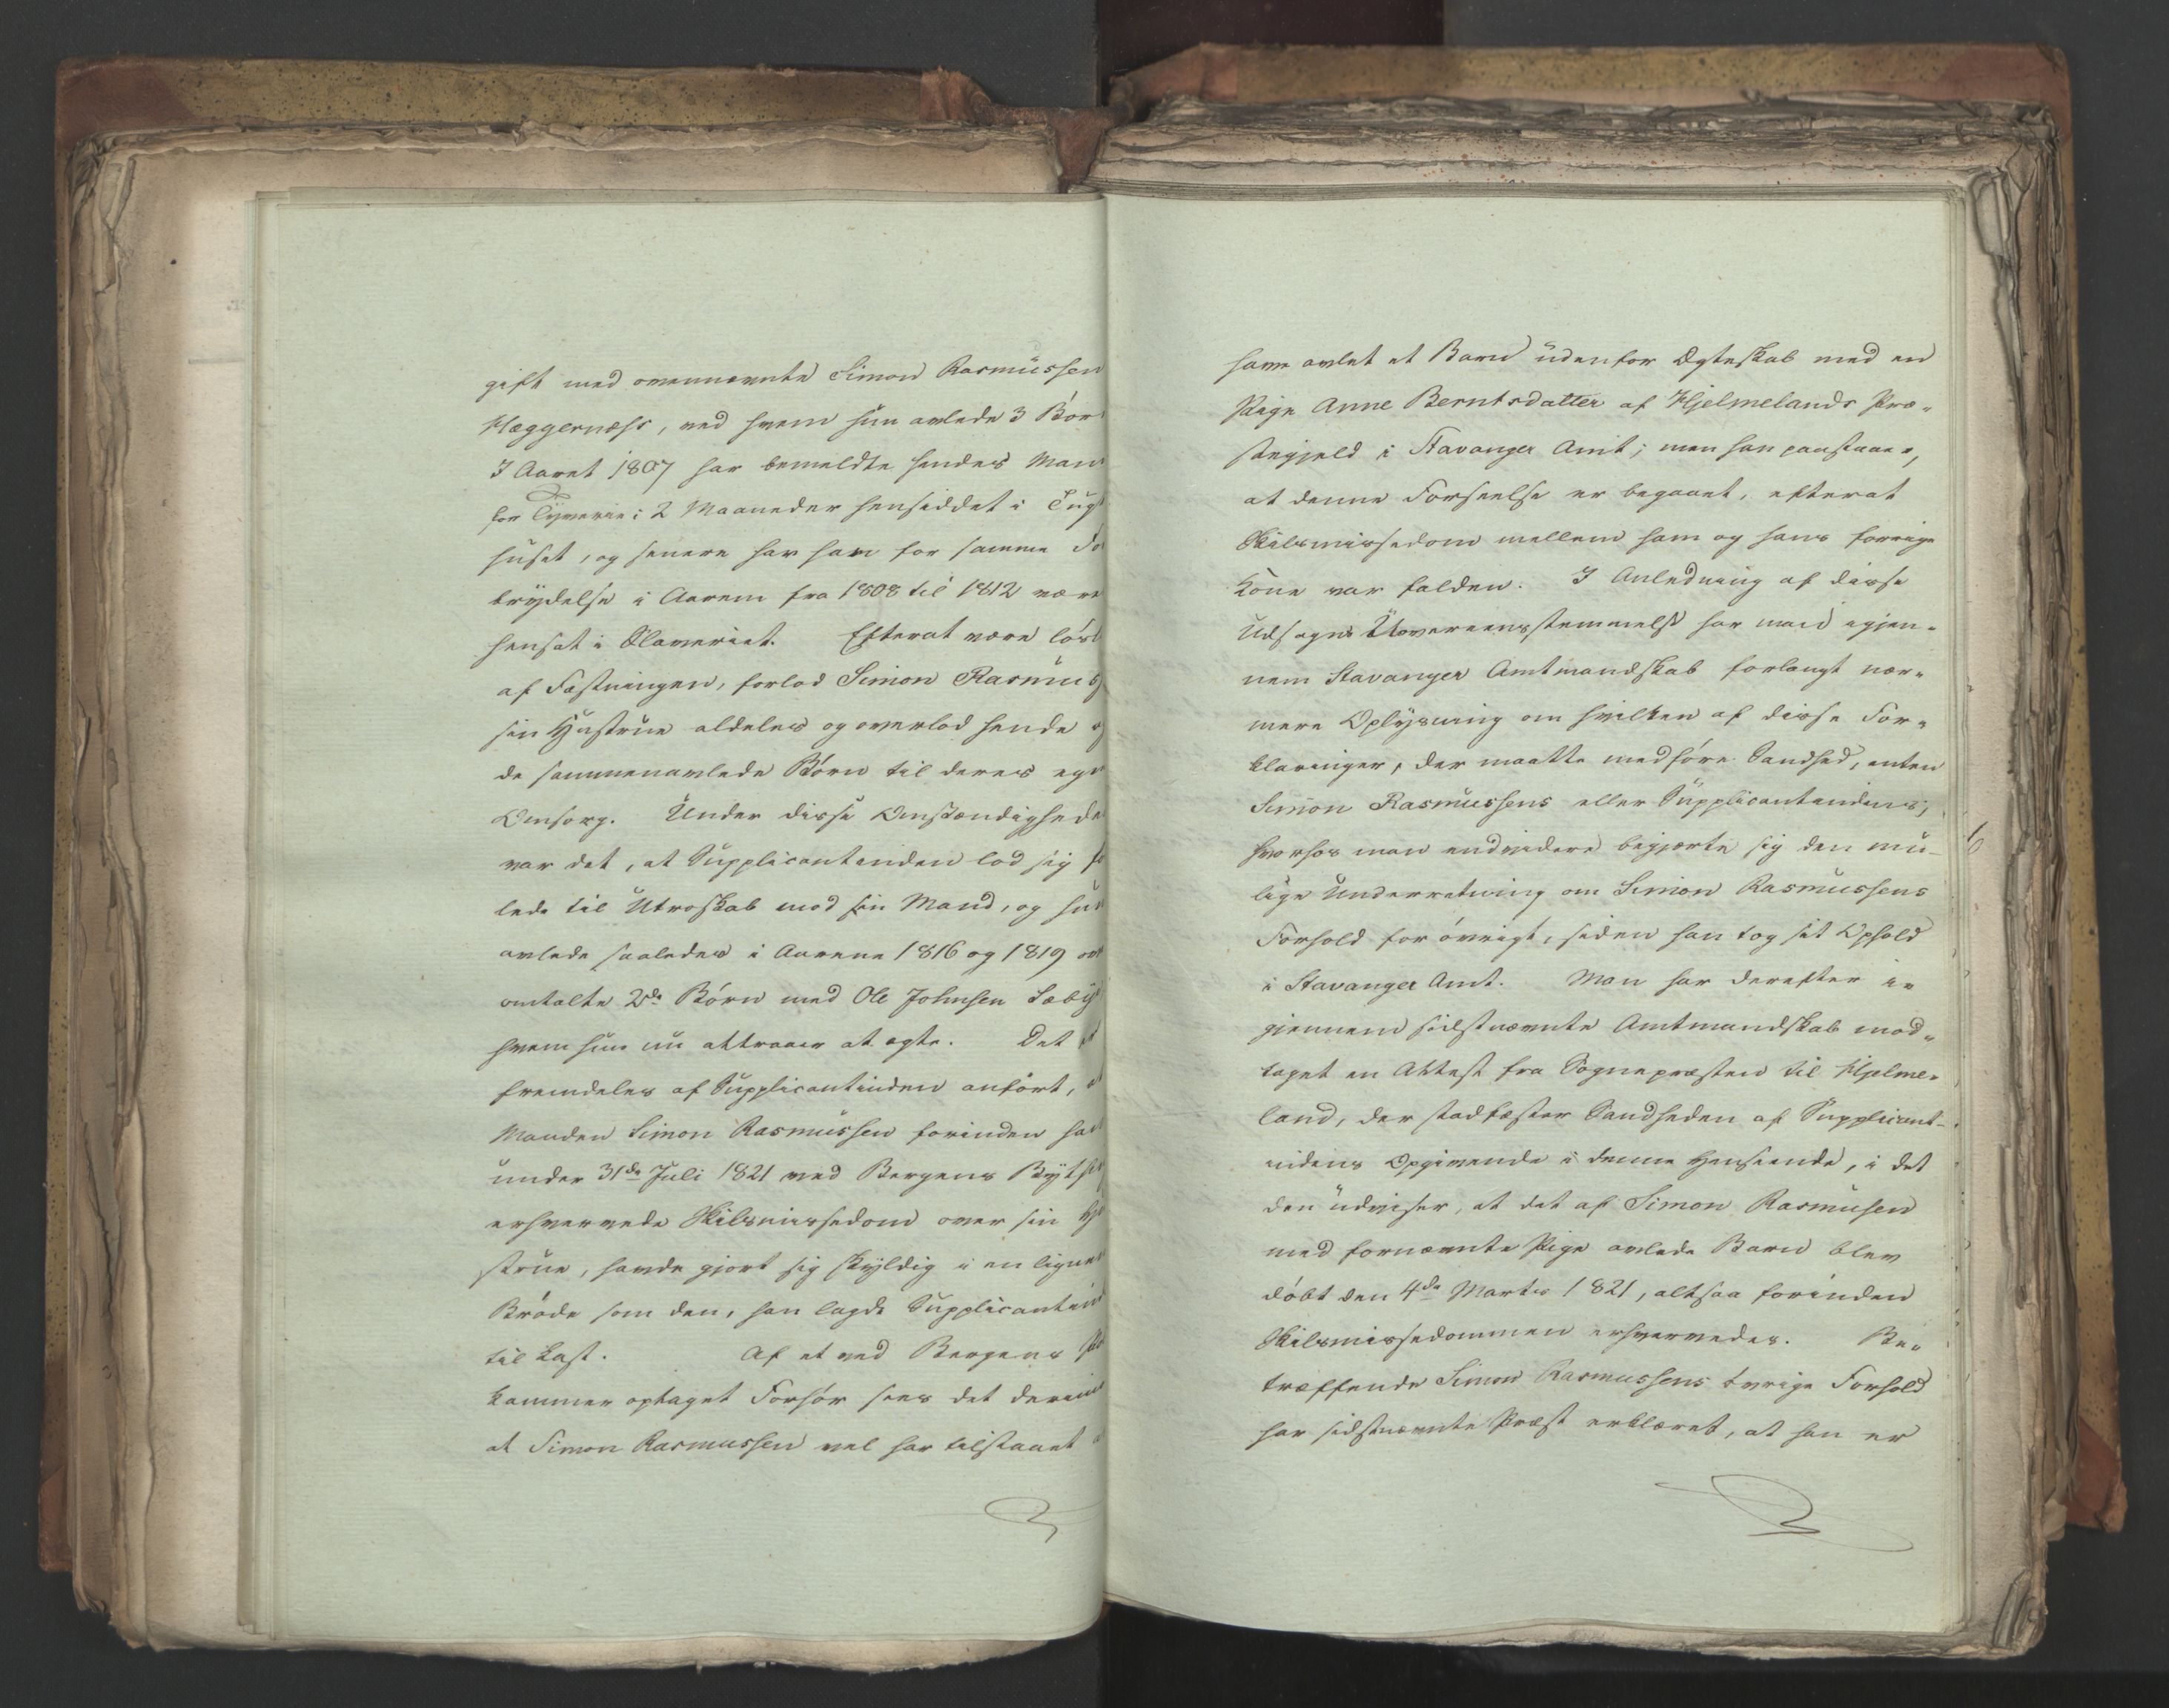 gift med ovennævnte Simon Rasmüssen
Hæggernæss, med hvem hün avlede 3 Bör
I Aaret 1807 har bemeldte hendes Man
for Tyverie i 2 Maaneder hensiddet i Tügt
hüset, og senere har han for samme Fo
brydelse i Aarene fra 1808 til 1812 være
hensat i Slaveriet. Efterat være lösl
af Fæstningen, forlod Simon Rasmüs
sin Hüstrüe aldeles og overlod hende og
de sammenavlede Börn til deres egen
Omsorg. Under disse Omstændighede
var det, at Supplicantinden lod sig fo
lede til Utroskab mod sin Mand, og hün
avlede saaledes i Aarene 1816 og 1819 ov
omtalte 2de Börn med Ole Johnsen Sæby
hvem hün nü attraaer at ægte. Det er
fremdeles af Supplicantinden anfört, at
Manden Simon Rasmüssen forinden han
ünder 31de Juli 1821 ved Bergens Byth
erhvervede Skilsmissedom over sin Hü
strüe, havde gjort sig skyldig i en lignen
Bröde som den, han lagde Supplicantind
til Last. Af et ved Bergens
kammer optaget Forhör sees det derimo
at Simon Rasmussen vel har tilstaaet at
have avlet et Barn üdenfor Ægteskab med en
Pige Anne Berntsdatter af Hjelmelands Præ-
stegjeld i Stavanger Amt; men han paastaaer,
at denne Forseelse er begaaet, efterat
Skilsmissedom mellem ham og hans forrige
Kone var falden. I Anledning af disse
Udsagns Uovereensstemmelse har man igjen-
nem Stavanger Amtmandskab forlangt nær-
mere Oplysning om hvilken af disse For-
klaringer, der maatte medföre Sandhed, enten
Simon Rasmüssens eller Supplicantindens,
hvorhos man endvidere begjerte sig den mü-
lige Underretning om Simon Rasmüssens
Forhold for övrigt, siden han tog sit Ophold
i Stavanger Amt. Man har derefter i-
gjennem sidstnævnte Amtmandskab mod-
taget en Attest fra Sognepræsten til Hjelme-
land, der stadfæster Sandheden af Supplicant-
indens Opgivende i denne Henseende, i det
den üdviser, at det af Simon Rasmüsen
med fornævnte Pige avlede Barn blev
döbt den 4de Marts 1821, altsaa forinden
Skilsmissedommen erhvervedes. Be-
træffende Simon Rasmussens övrige Forhold
har sidstnævnte Præst erklæret, at han er